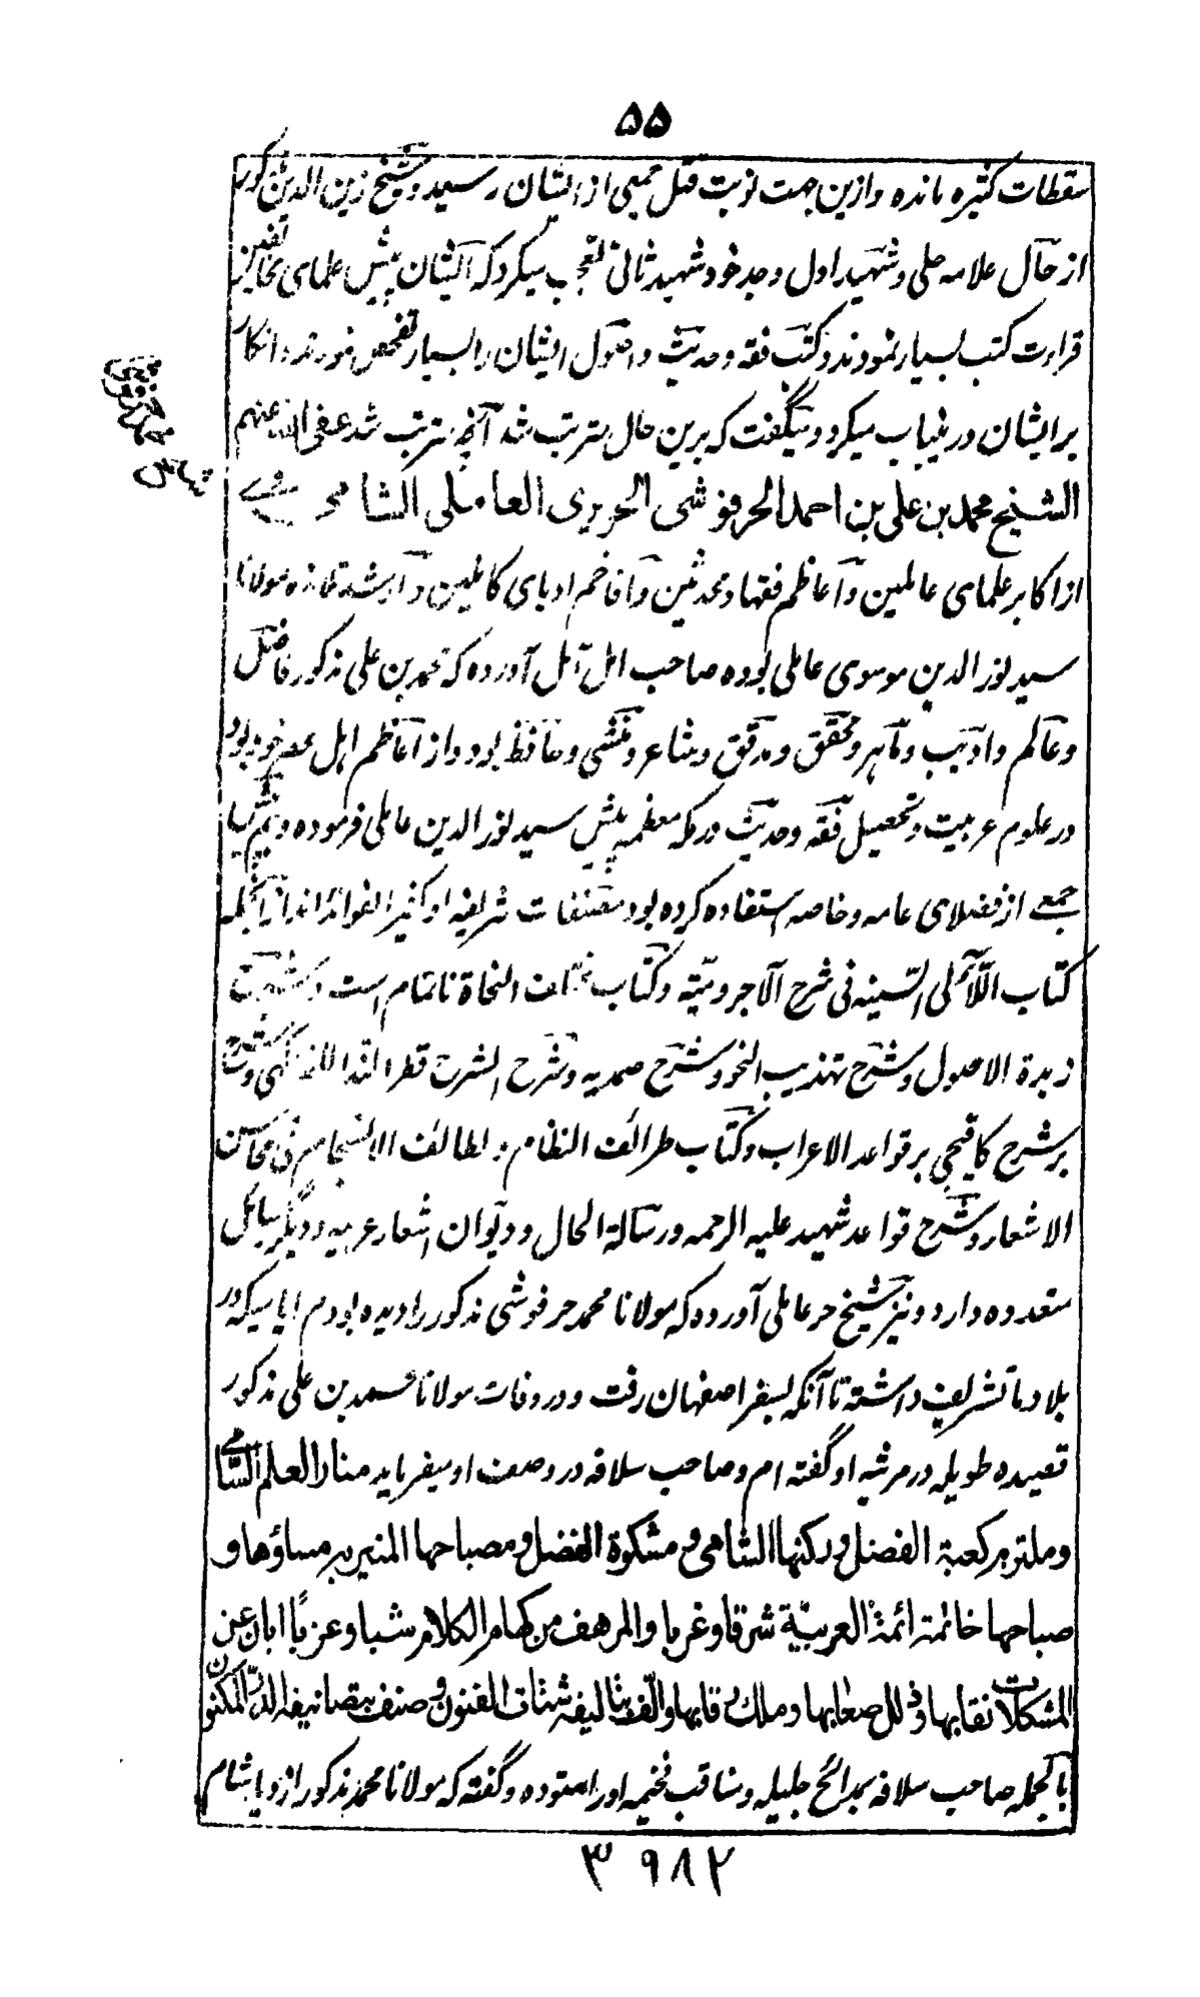 ۵۵
سقطات کثیره مانده و ازین جهت نوبت قتل جمعی از ایشان رسید و شیخ زین الدین مذکور
از حال علامه حلی و شهید اول و جد خود شهید ثانی تعجب میکرد که ایشان پیش علمای مخالفین
قراءت کتب بسیار نمودند و کتب فقه و حدیث و اصول ایشان را بسیار تفحص فرمودند و انکار
بر ایشان در ینباب میکرد و میگفت که برین حال مترتب شد آنچه مترتب شد عفی الله عنهم
الشیخ محمد بن علی بن احمد الحرفوشی الحریری العاملی الشامی
از اکابر علمای عالمین و اعاظم فقها و محدثین و افاخم ادبای کاملین و ارشد تلامذه مولانا
سید نور الدین موسوی عاملی بوده صاحب امل آمل آورده که محمد بن علی مذکور فاضل
و عالم و ادیب و ماهر و محقق و مدقق و شاعر و منشی و حافظ بود و از اعاظم اهل عصر خود بود
در علوم عربیت و تحصیل فقه و حدیث در مکه معظمه پیش سید نور الدین عاملی فرموده و نیز پیش
جمعی از فضلای عامه و خاصه استفاده کرده بود مصنفات شریفه او کثیر الفوائد اند از آنجمله
کتاب اللآلی السنیه فی شرح الآجرومیّة و کتاب مختلف النحاة ناتمام است و شرح
زبدة الاصول و شرح تهذیب النحو و شرح صمدیه و شرح الشرح قطر الندا للفاکهی و شرح
بر شرح کافیجی بر قواعد الاعراب و کتاب طرائف النظام و لطائف الانسجام فی محاسن
الاشعار و شرح قواعد شهید علیه الرحمه و رسالة الحال و دیوان اشعار عربیه و دیگر رسائل
متعدده دارد و نیز شیخ حر عاملی آورده که مولانا محمد حرفوشی مذکور را دیده بودم ایامیکه در
بلاد ما تشریف داشته تا آنکه بسفر اصفهان رفت و در وفات مولانا محمد بن علی مذکور
قصیده طویله در مرثیه او گفته ام و صاحب سلافه در وصف او میفرماید منار العلم السّامی
و ملتزم کعبة الفضل و رکنها الشامی و مشکوة الفضل و مصباحها المنیر به مساؤها و
صباحها خاتمة ائمة العربیّة شرقا و غربا و المرهف من کهام الکلام شبا و غربًا اماط عن
المشکلات نقابها و ذلل صعابها و ملک رقابها و الّف بتالیفه شتات الفنون و صنف بتصانیفه الدّر المکنون
بالجمله صاحب سلافه بمدائح جلیله و مناقب فخیمه او را ستوده و گفته که مولانا محمد مذکور از دیار شام
۳ ۹۸۲